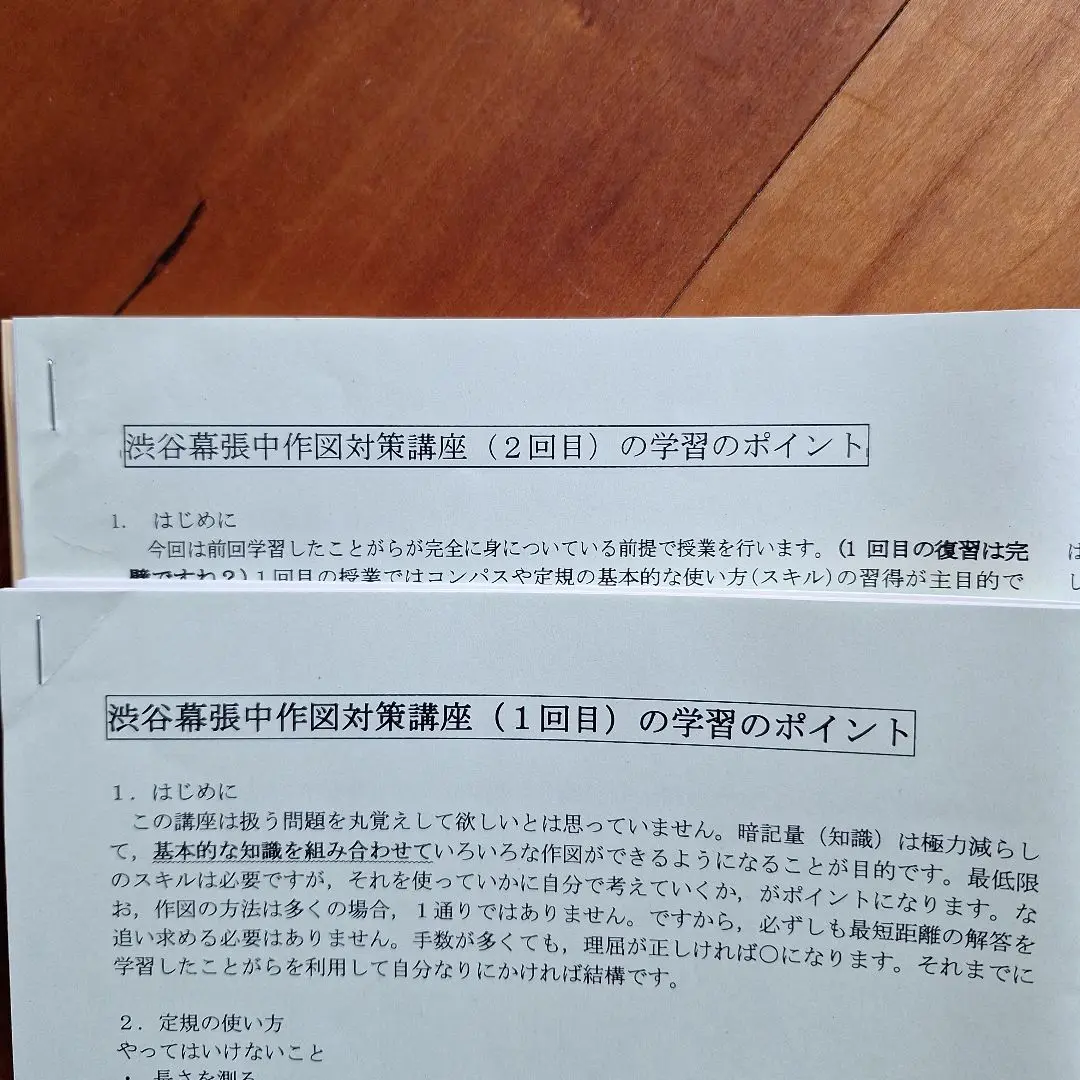 渋谷幕張中作図対策講座（２回目）の学習のポイント
1. はじめに
今回は前回学習したことがらが完全に身についている前提で授業を行います。(1 回目の復習は完
璧ですね？) 1回目の授業ではコンパスや定規の基本的な使い方(スキル)の習得が主目的で
渋谷幕張中作図対策講座（１回目）の学習のポイント
１．はじめに
この講座は扱う問題を丸覚えして欲しいとは思っていません。暗記量（知識）は極力減らし
て，基本的な知識を組み合わせていろいろな作図ができるようになることが目的です。最低限
のスキルは必要ですが，それを使っていかに自分で考えていくか，がポイントになります。な
お，作図の方法は多くの場合，１通りではありません。ですから，必ずしも最短距離の解答を
追い求める必要はありません。手数が多くても，理屈が正しければ○になります。それまでに
学習したことがらを利用して自分なりにかければ結構です。
２．定規の使い方
やってはいけないこと
・ 長さを測る